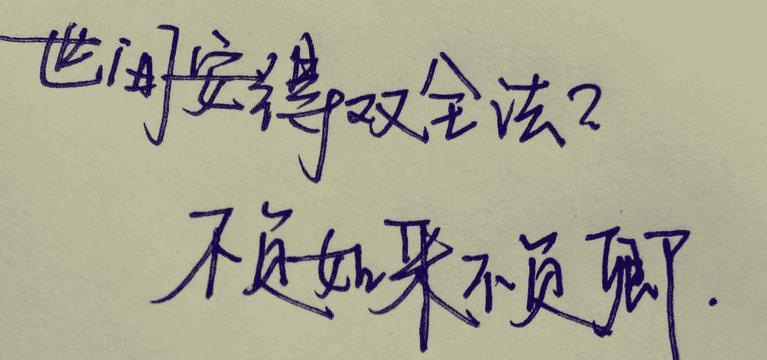 世间安得双全法？
不负如来不负卿.